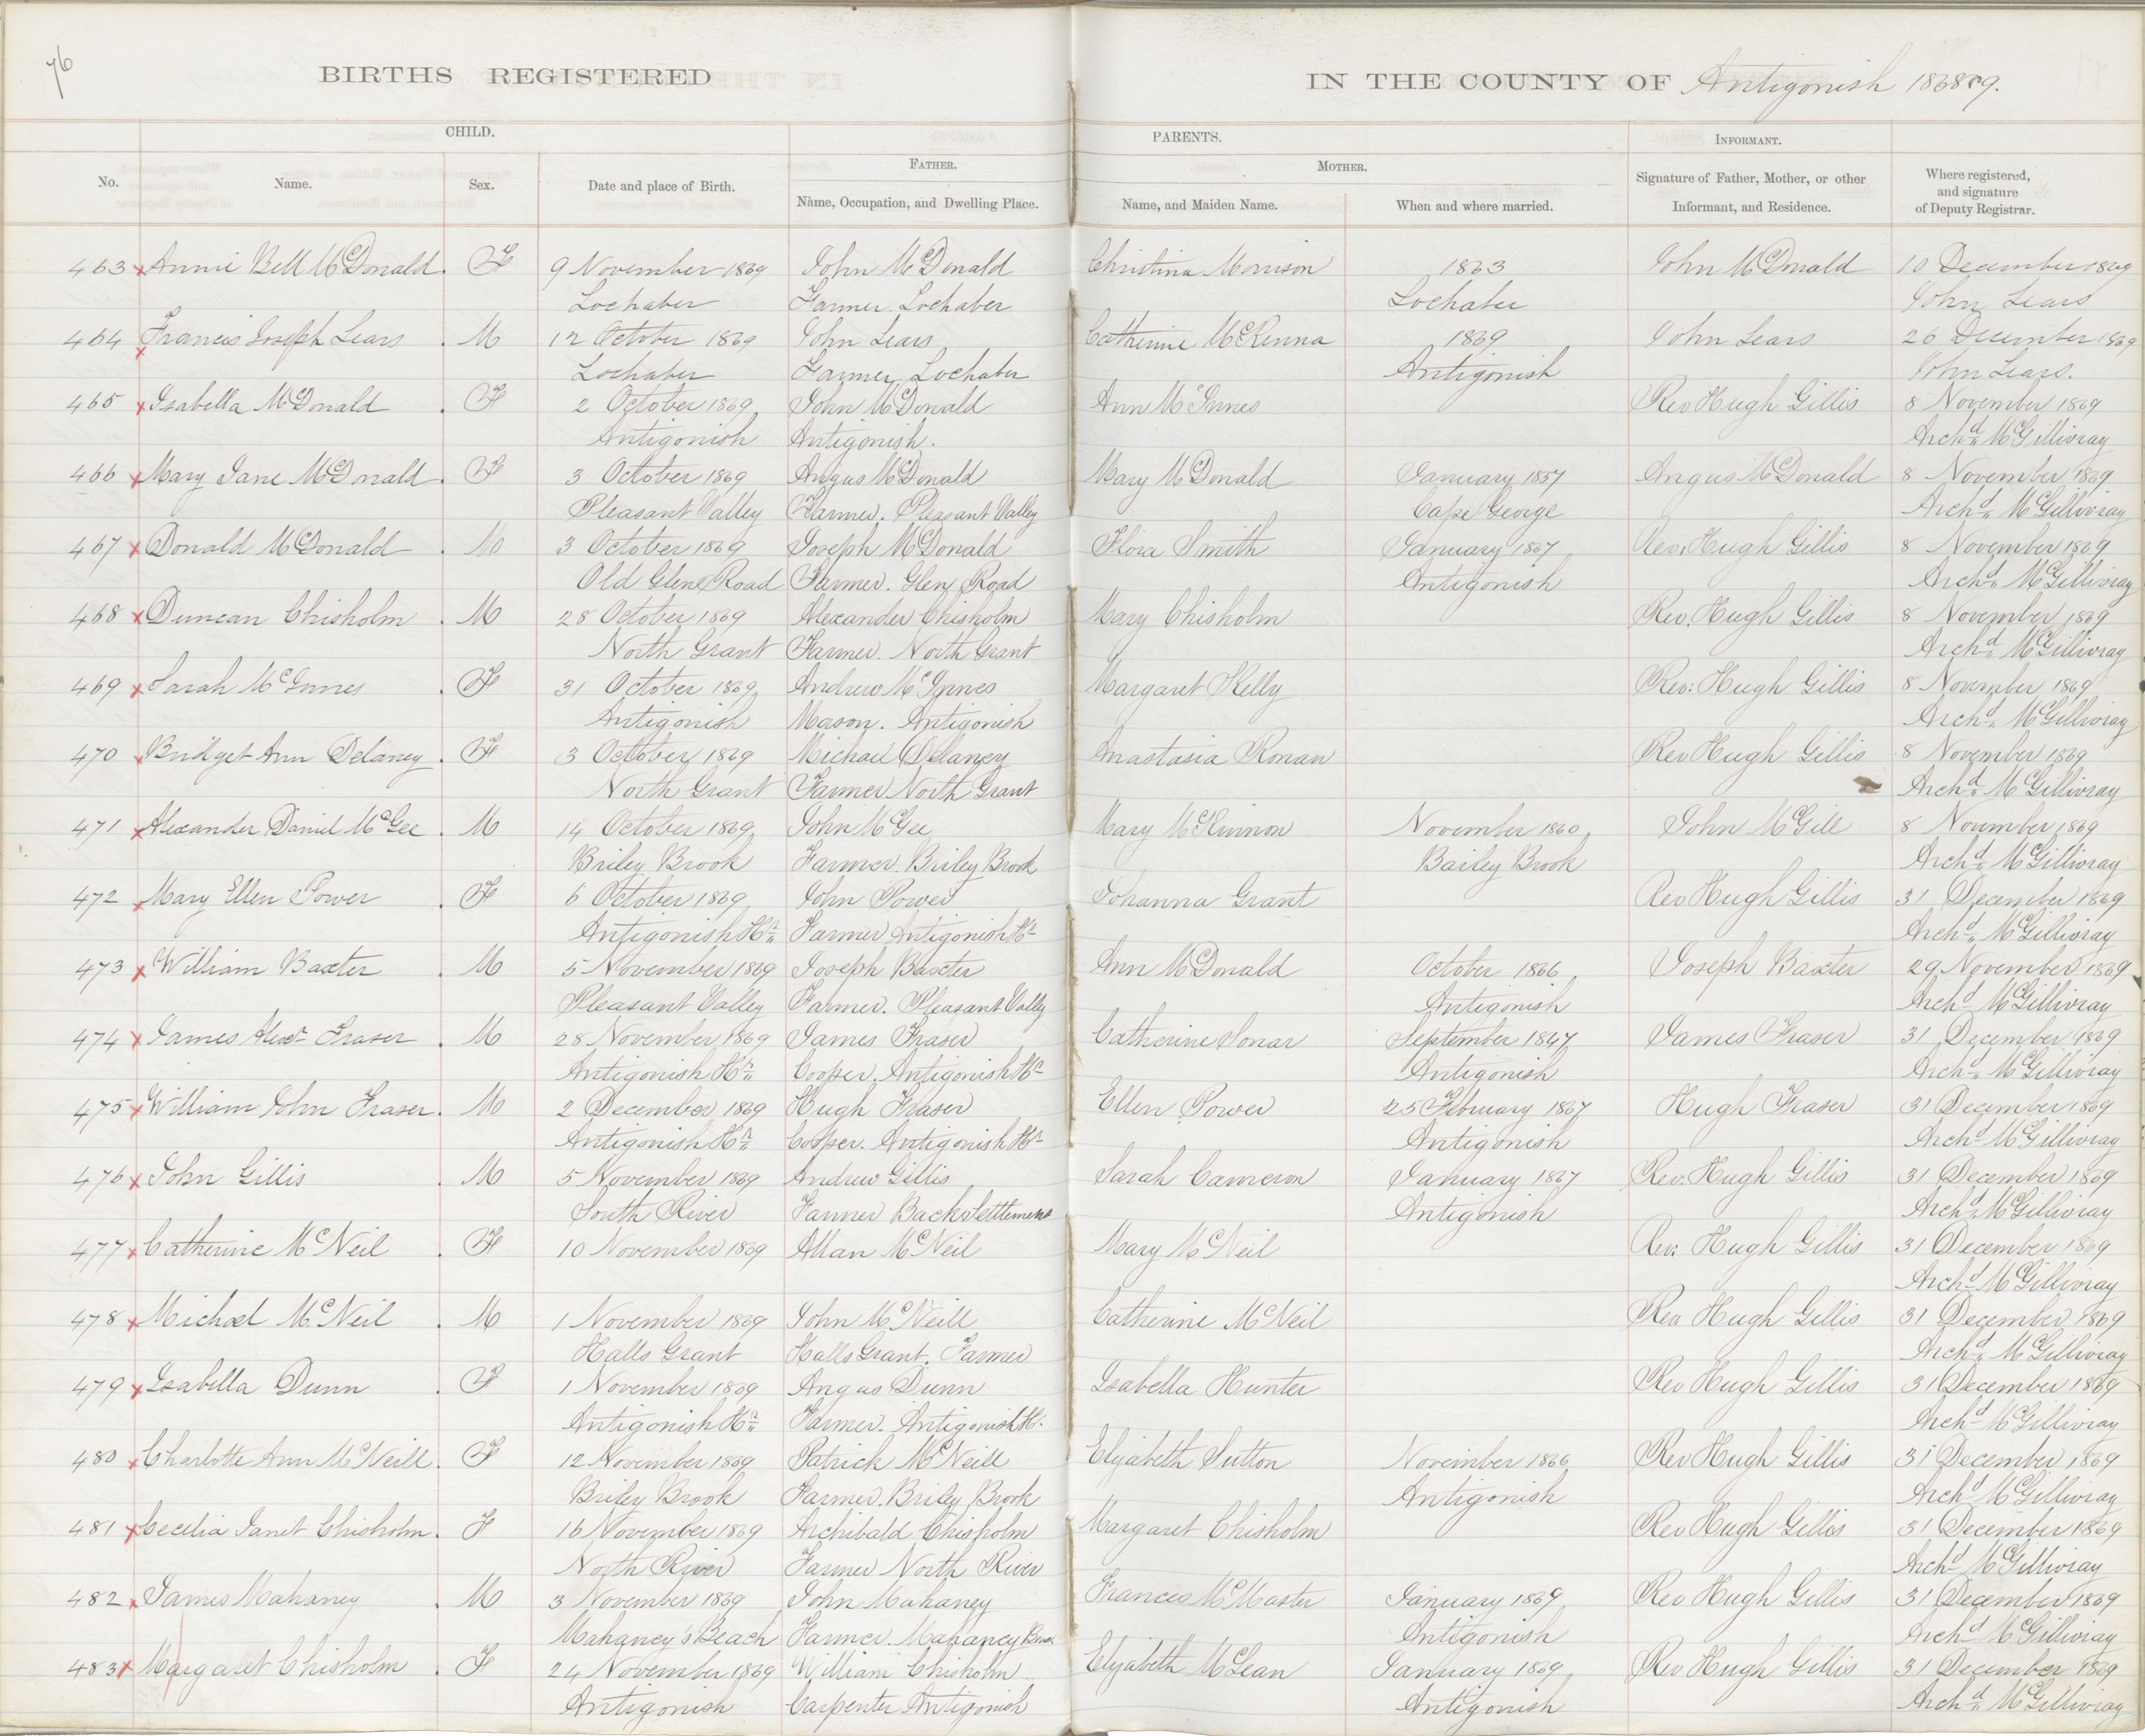 76
BIRTHS REGISTERED IN THE COUNTY OF Antigonish 1868 & 9.
CHILD. PARENTS. INFORMANT.
FATHER. MOTHER.
No. Name. Sex. Date and place of Birth. Name, Occupation, and Dwelling Place. Name, and Maiden Name. When and where married. Signature of Father, Mother, or other Informant, and Residence. Where registered, and signature of Deputy Registrar.
463 x Annie Bell McDonald. F 9 November 1869 John McDonald Christina Morrison 1863 John McDonald 10 December 1869
Lochaber Farmer. Lochaber Lochaber John Sears
464 x Francis Joseph Sears . M 12 October 1869 John Sears Catherine McKenna 1869 John Sears 26 December 1869
Lochaber Farmer, Lochaber Antigonish John Sears.
465 x Isabella McDonald . F 2 October 1869 John McDonald Ann McInnes Rev Hugh Gillis 8 November 1869
Antigonish Antigonish. Archd McGillivray
466 x Mary Jane McDonald . F 3 October 1869 Angus McDonald Mary McDonald January 1857 Angus McDonald 8 November 1869
Pleasant Valley Farmer. Pleasant Valley Cape George Archd McGillivray
467 x Donald McDonald . M 3 October 1869 Joseph McDonald Flora Smith January 1867 Rev. Hugh Gillis 8 November 1869
Old Glen Road Farmer. Glen Road Antigonish Archd McGillivray
468 x Duncan Chisholm . M 28 October 1869 Alexander Chisholm Mary Chisholm Rev. Hugh Gillis 8 November 1869
North Grant Farmer. North Grant Archd McGillivray
469 x Sarah McInnes . F 31 October 1869 Andrew McInnes Margaret Kelly Rev: Hugh Gillis 8 November 1869
Antigonish Mason. Antigonish Archd McGillivray
470 x Bridget Ann Delaney . F 3 October 1869 Michael Delaney Anastasia Ronan Rev Hugh Gillis 8 November 1869
North Grant Farmer North Grant Archd McGillivray
471 x Alexander Daniel McGee . M 14 October 1869 John McGee Mary McKinnon November 1860 John McGill 8 November 1869
Briley Brook Farmer. Briley Brook Bailey Brook Archd McGillivray
472 x Mary Ellen Power . F 6 October 1869 John Power Johanna Grant Rev Hugh Gillis 31 December 1869
Antigonish Hr Farmer Antigonish Hr Archd McGillivray
473 x William Baxter . M 5 November 1869 Joseph Baxter Ann McDonald October 1866 Joseph Baxter 29 November 1869
Pleasant Valley Farmer. Pleasant Valley Antigonish Archd McGillivray
474 x James Alexr Fraser . M 28 November 1869 James Fraser Catherine Sonar September 1847 James Fraser 31 December 1869
Antigonish Hr Cooper. Antigonish Hr Antigonish Archd McGillivray
475 x William John Fraser . M 2 December 1869 Hugh Fraser Ellen Power 25 February 1867 Hugh Fraser 31 December 1869
Antigonish Hr Cooper. Antigonish Hr Antigonish Archd McGillivray
476 x John Gillis . M 5 November 1869 Andrew Gillis Sarah Cameron January 1867 Rev. Hugh Gillis 31 December 1869
South River Farmer Back Settlement Antigonish Archd McGillivray
477 x Catherine McNeil . F 10 November 1869 Allan McNeil Mary McNeil Rev: Hugh Gillis 31 December 1869
Archd McGillivray
478 x Michael McNeil . M 1 November 1869 John McNeill Catherine McNeil Rev Hugh Gillis 31 December 1869
Halls Grant Halls Grant. Farmer Archd McGillivray
479 x Isabella Dunn . F 1 November 1869 Angus Dunn Isabella Hunter Rev Hugh Gillis 31 December 1869
Antigonish Hr Farmer. Antigonish Hr Archd McGillivray
480 x Charlotte Ann McNeill . F 12 November 1869 Patrick McNeill Elizabeth Sutton November 1866 Rev Hugh Gillis 31 December 1869
Briley Brook Farmer. Briley Brook Antigonish Archd McGillivray
481 x Cecilia Janet Chisholm . F 16 November 1869 Archibald Chisholm Margaret Chisholm Rev Hugh Gillis 31 December 1869
North River Farmer North River Archd McGillivray
482 x James Mahaney . M 3 November 1869 John Mahaney Frances McMaster January 1869 Rev Hugh Gillis 31 December 1869
Mahaney's Beach Farmer. Mahaney Antigonish Archd McGillivray
483 x Margaret Chisholm . F 24 November 1869 William Chisholm Elizabeth McLean January 1869 Rev Hugh Gillis 31 December 1869
Antigonish Carpenter Antigonish Antigonish Archd McGillivray